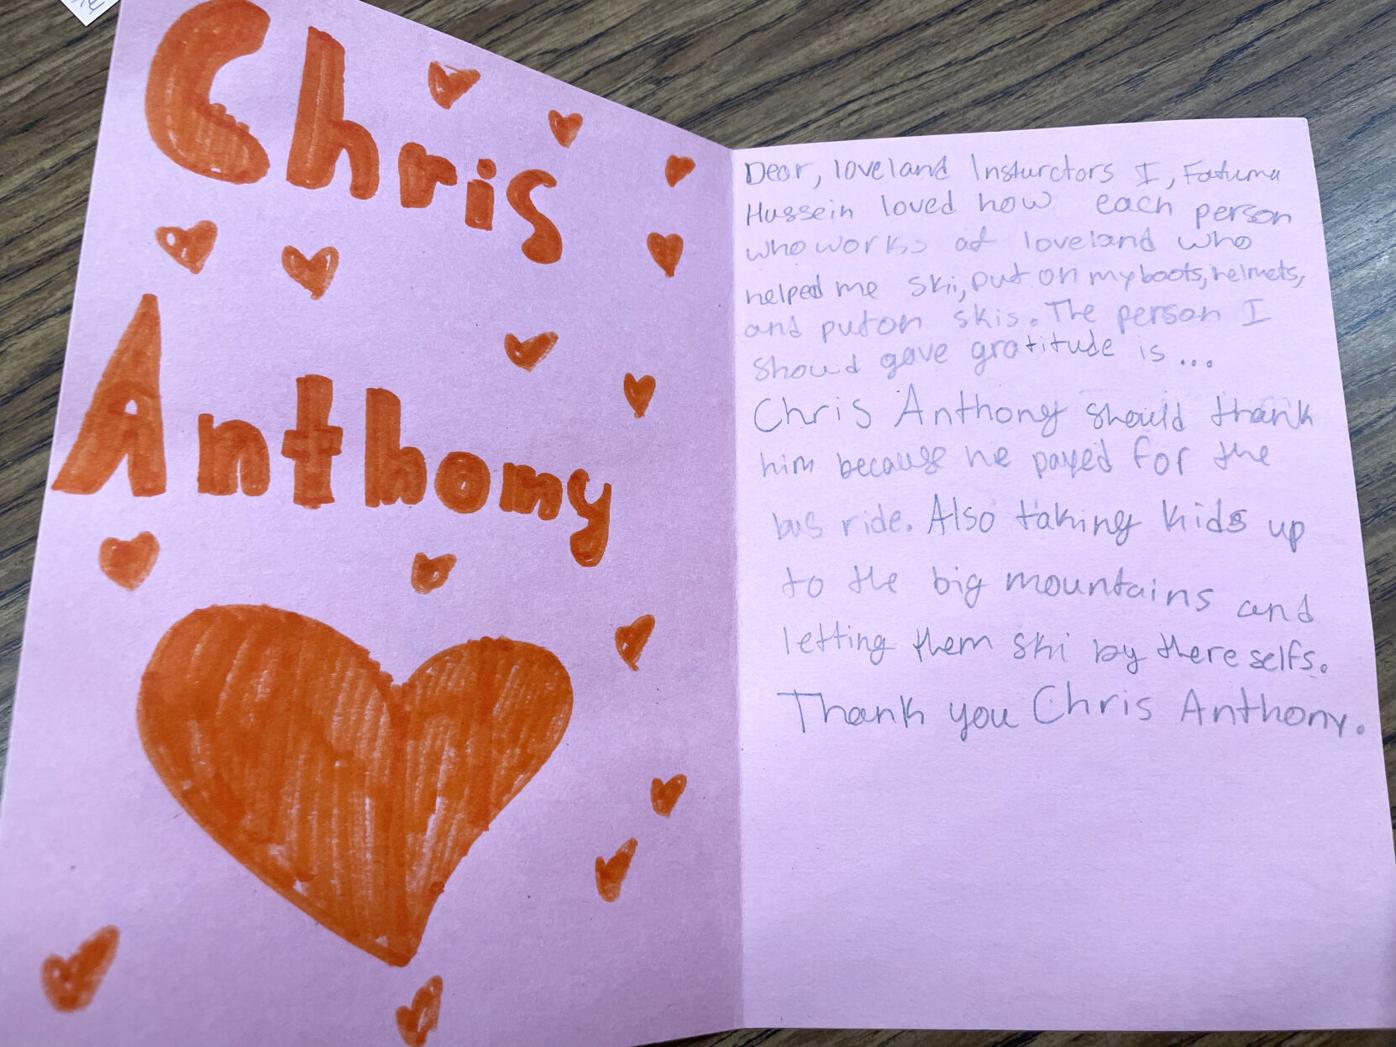 Chris
Anthony
Dear, loveland Insturctors I, Fatuma
Hussein loved how each person
who works at loveland who
helped me ski, put on my boots, helmets,
and put on skis. The person I
should gave gratitude is...
Chris Anthony should thank
him because he payed for the
bus ride. Also taking kids up
to the big mountains and
letting them ski by there selfs.
Thank you Chris Anthony.